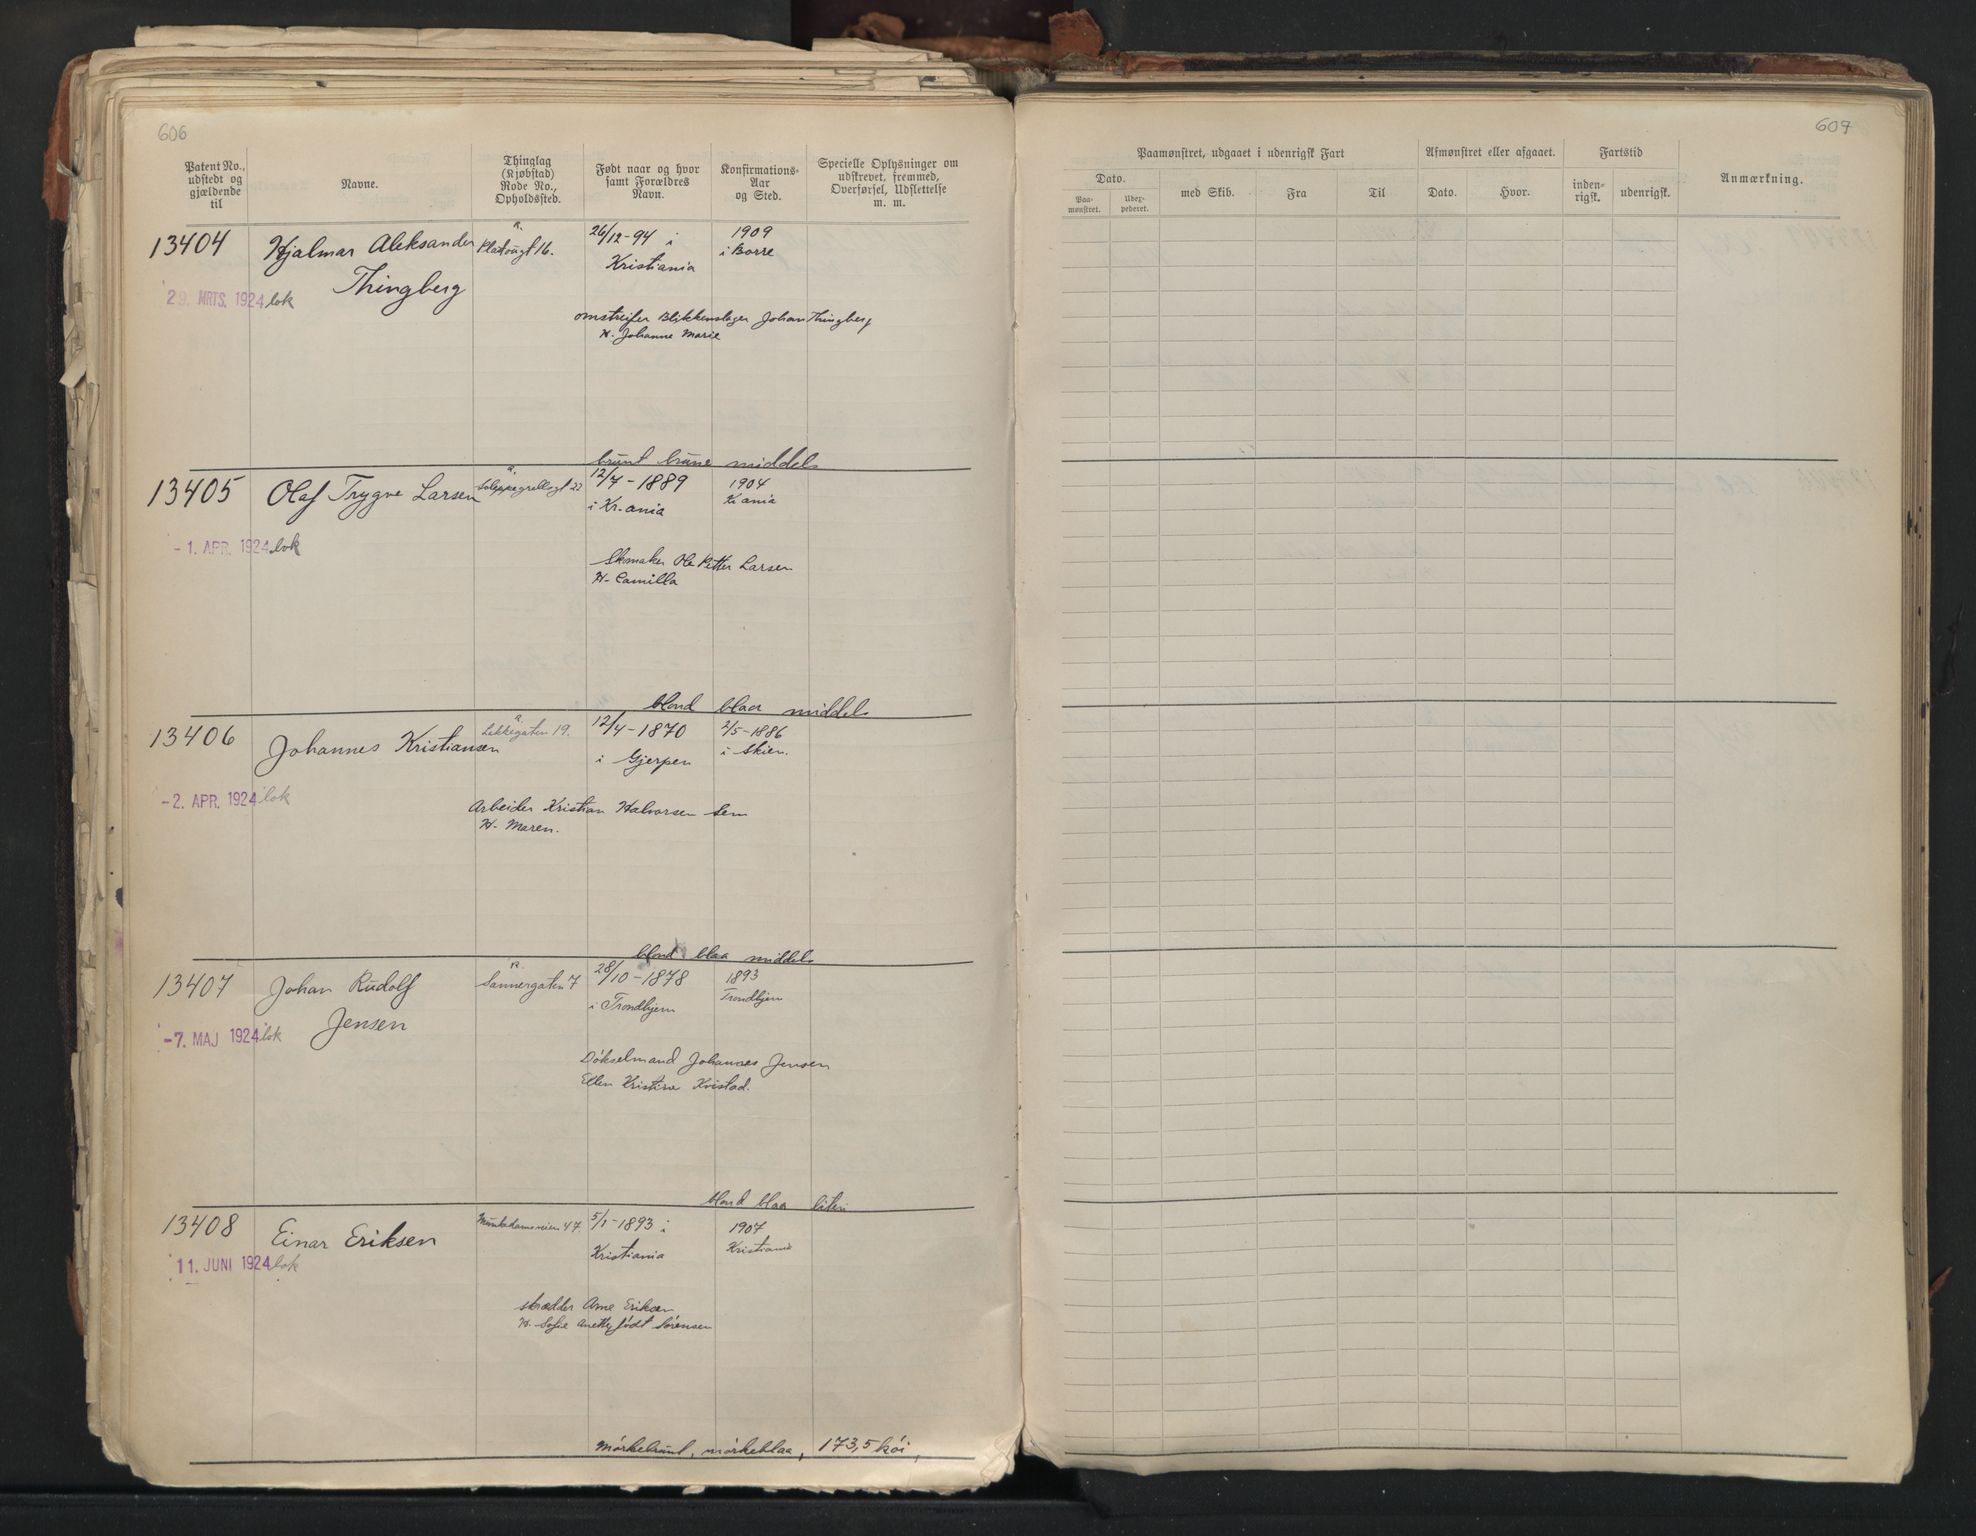 606
Patent No.,
udstedt og
gjældende
til
Navne.
Thinglag
(Kjøbstad)
Rode No.,
Opholdssted.
Født naar og hvor
samt Forældres
Navn.
Konfirmations-
Aar
og Sted.
Specielle Oplysninger om
udskrevet, fremmed,
Overførsel, Udslettelse
m. m.
13404
Hjalmar Aleksander
Thingberg
29. MRTS. 1924 lok
26/12-94 i
Kristiania
1909
i Borre
omstreifer Blikkenslager Johan Thingberg
H. Johanne Marie
brunt brune middels
13405
Olaf Trygve Larsen
-1. APR. 1924 lok
12/7-1889
i Kr.ania
1904
Kr ania
Skomaker Ole Petter Larsen
H- Camilla
blond blaa middels
13406
Johannes Kristiansen
-2. APR. 1924 lok
Lekkegaten 19.
12/4-1870
i Gjerpen
2/5-1886
i Skien.
Arbeider Kristian Halvorsen Sem
H- Maren.
blond blaa middels
13407
Johan Rudolf
Jensen
-7. MAJ 1924 lok
Sannergaten 7
28/10-1878
i Trondhjem
1893
Trondhjem
Johannes Jensen
Ellen Kristine Kvistad.
blond blaa liten
13408
Einar Eriksen
11. JUNI 1924 lok
Munkedamsveien 47.
5/1-1893 i
Kristiania
1907
Kristiania
skrædder Arne Eriksen
H. Sofie født Sørensen
Mørkebrunt, mørkeblaa, 173,5 høi,
607
Paamønstret, udgaaet i udenrigsk Fart
Afmønstret eller afgaaet.
Fartstid
Anmærkning.
Dato.
Paa-
mønstret.
Uder-
pederet.
med Skib.
Fra
Til
Dato.
Hvor.
inden-
rigsk.
udenrigsk.